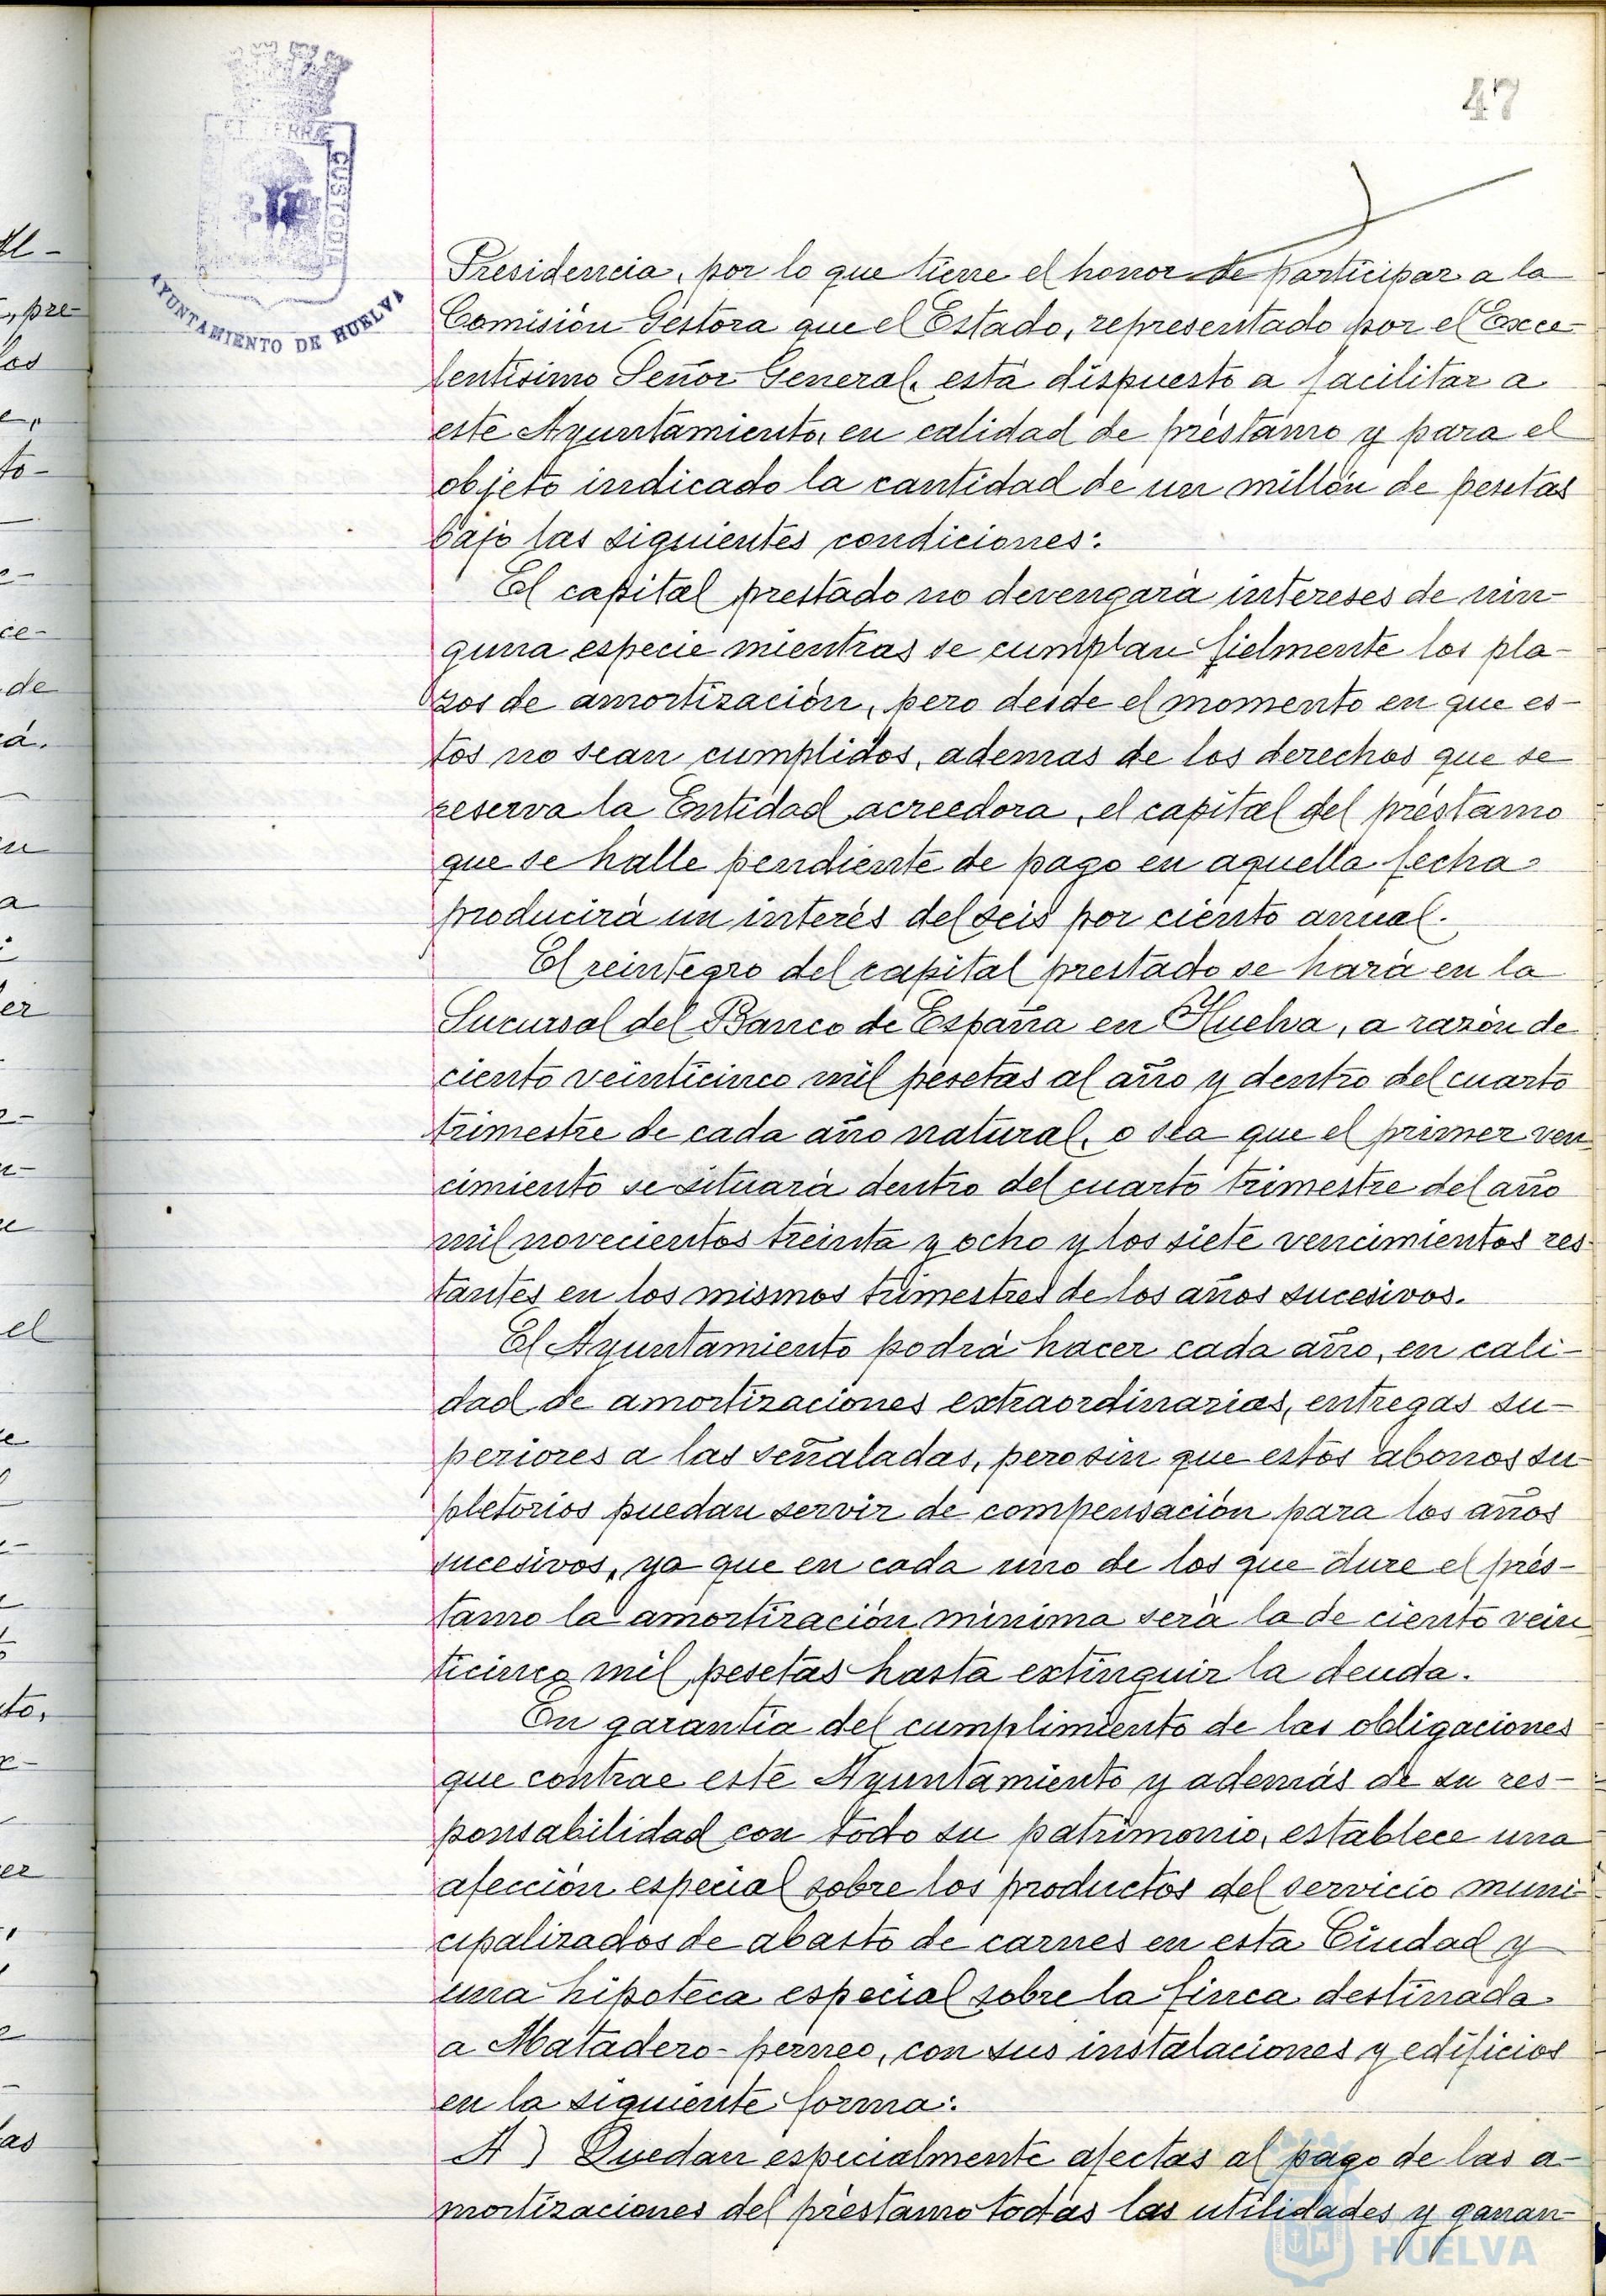 47
ET TERRE
CUSTODI
AYUNTAMIENTO DE HUELVA
Presidencia, por lo que tiene el honor de participar a la
Comisión Gestora que el Estado, representado por el Exce-
lentísimo Señor General, está dispuesto a facilitar a
este Ayuntamiento, en calidad de préstamo y para el
objeto indicado la cantidad de un millón de pesetas
bajo las siguientes condiciones:
El capital prestado no devengará intereses de nin-
guna especie mientras se cumplan fielmente los pla-
zos de amortización, pero desde el momento en que es-
tos no sean cumplidos, ademas de los derechos que se
reserva la Entidad acreedora, el capital del préstamo
que se halle pendiente de pago en aquella fecha
producirá un interés del seis por ciento anual.
El reintegro del capital prestado se hará en la
Sucursal del Banco de España en Huelva, a razón de
ciento veinticinco mil pesetas al año y dentro del cuarto
trimestre de cada año natural, o sea que el primer ven
cimiento se situará dentro del cuarto trimestre del año
mil novecientos treinta y ocho y los siete vencimientos res-
tantes en los mismos trimestres de los años sucesivos.
El Ayuntamiento podrá hacer cada año, en cali-
dad de amortizaciones extraordinarias, entregas su-
periores a las señaladas, pero sin que estos abonos su-
pletorios puedan servir de compensación para los años
sucesivos, ya que en cada uno de los que dure el prés-
tamo la amortización mínima será la de ciento vein
ticinco mil pesetas hasta extinguir la deuda.
En garantía del cumplimiento de las obligaciones
que contrae este Ayuntamiento y además de su res-
ponsabilidad con todo su patrimonio, establece una
afección especial sobre los productos del servicio muni-
cipalizados de abasto de carnes en esta Ciudad y
una hipoteca especial sobre la finca destinada
a Matadero-perneo, con sus instalaciones y edificios
en la siguiente forma:
A) Quedan especialmente afectas al pago de las a-
mortizaciones del préstamo todas las utilidades y ganan-
HUELVA